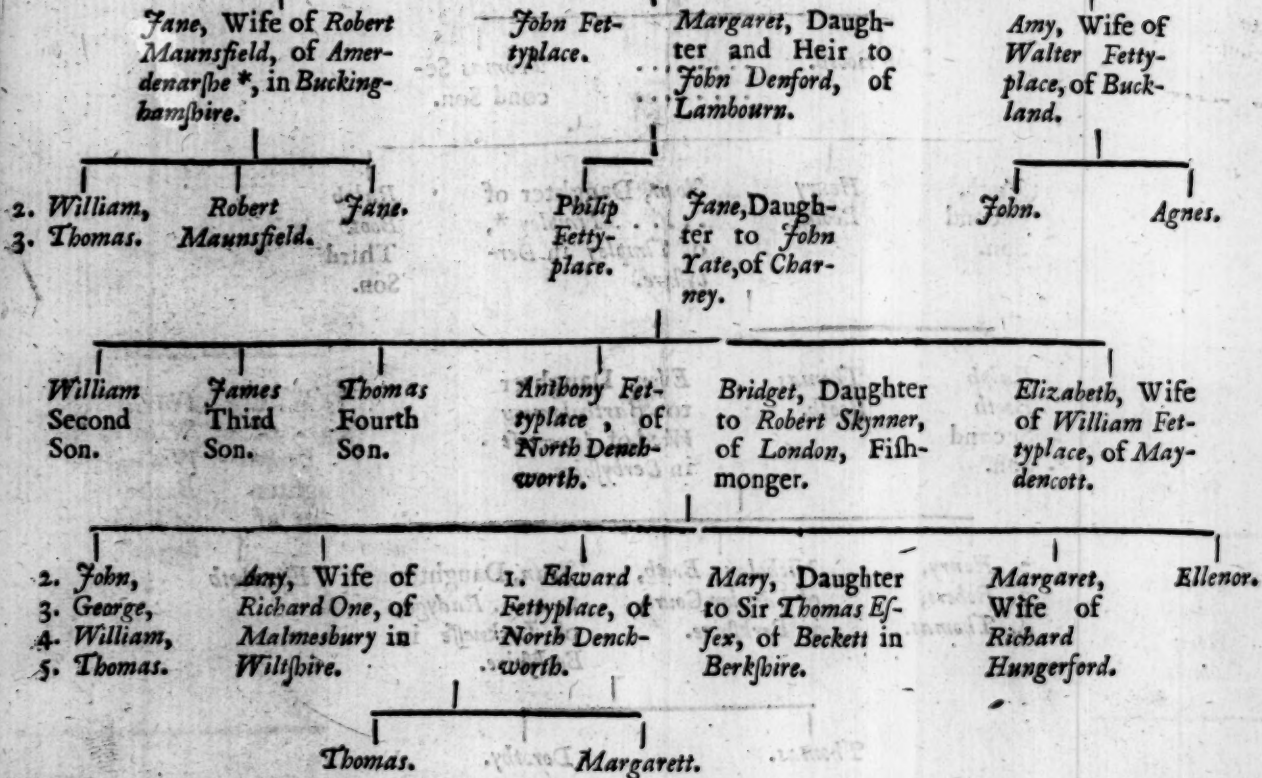 Jane, Wife of Robert
Maunsfield, of Amer-
denarſhe *, in Bucking-
hamſhire.
John Fet-
typlace.
Margaret, Daugh-
ter and Heir to
John Denford, of
Lambourn.
Amy, Wife of
Walter Fetty-
place, of Buck-
land.
2. William,
3. Thomas.
Robert
Maunsfield.
Jane.
Philip
Fetty-
place.
Jane, Daugh-
ter to John
Yate, of Char-
ney.
John.
Agnes.
William
Second
Son.
James
Third
Son.
Thomas
Fourth
Son.
Anthony Fet-
typlace, of
North Dench-
worth.
Bridget, Daughter
to Robert Skynner,
of London, Fiſh-
monger.
Elizabeth, Wife
of William Fet-
typlace, of May-
dencott.
2. John,
3. George,
4. William,
5. Thomas.
Amy, Wife of
Richard One, of
Malmesbury in
Wiltſhire.
1. Edward
Fettyplace, of
North Dench-
worth.
Mary, Daughter
to Sir Thomas Eſ-
ſex, of Beckett in
Berkſhire.
Margaret,
Wife of
Richard
Hungerford.
Ellenor.
Thomas.
Margarett.